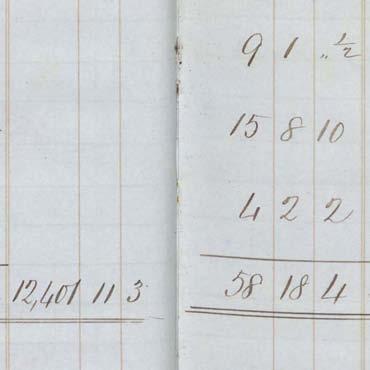 12,401 11 3
9 1 „ ½
15 8 10
4 2 2
58 18 4